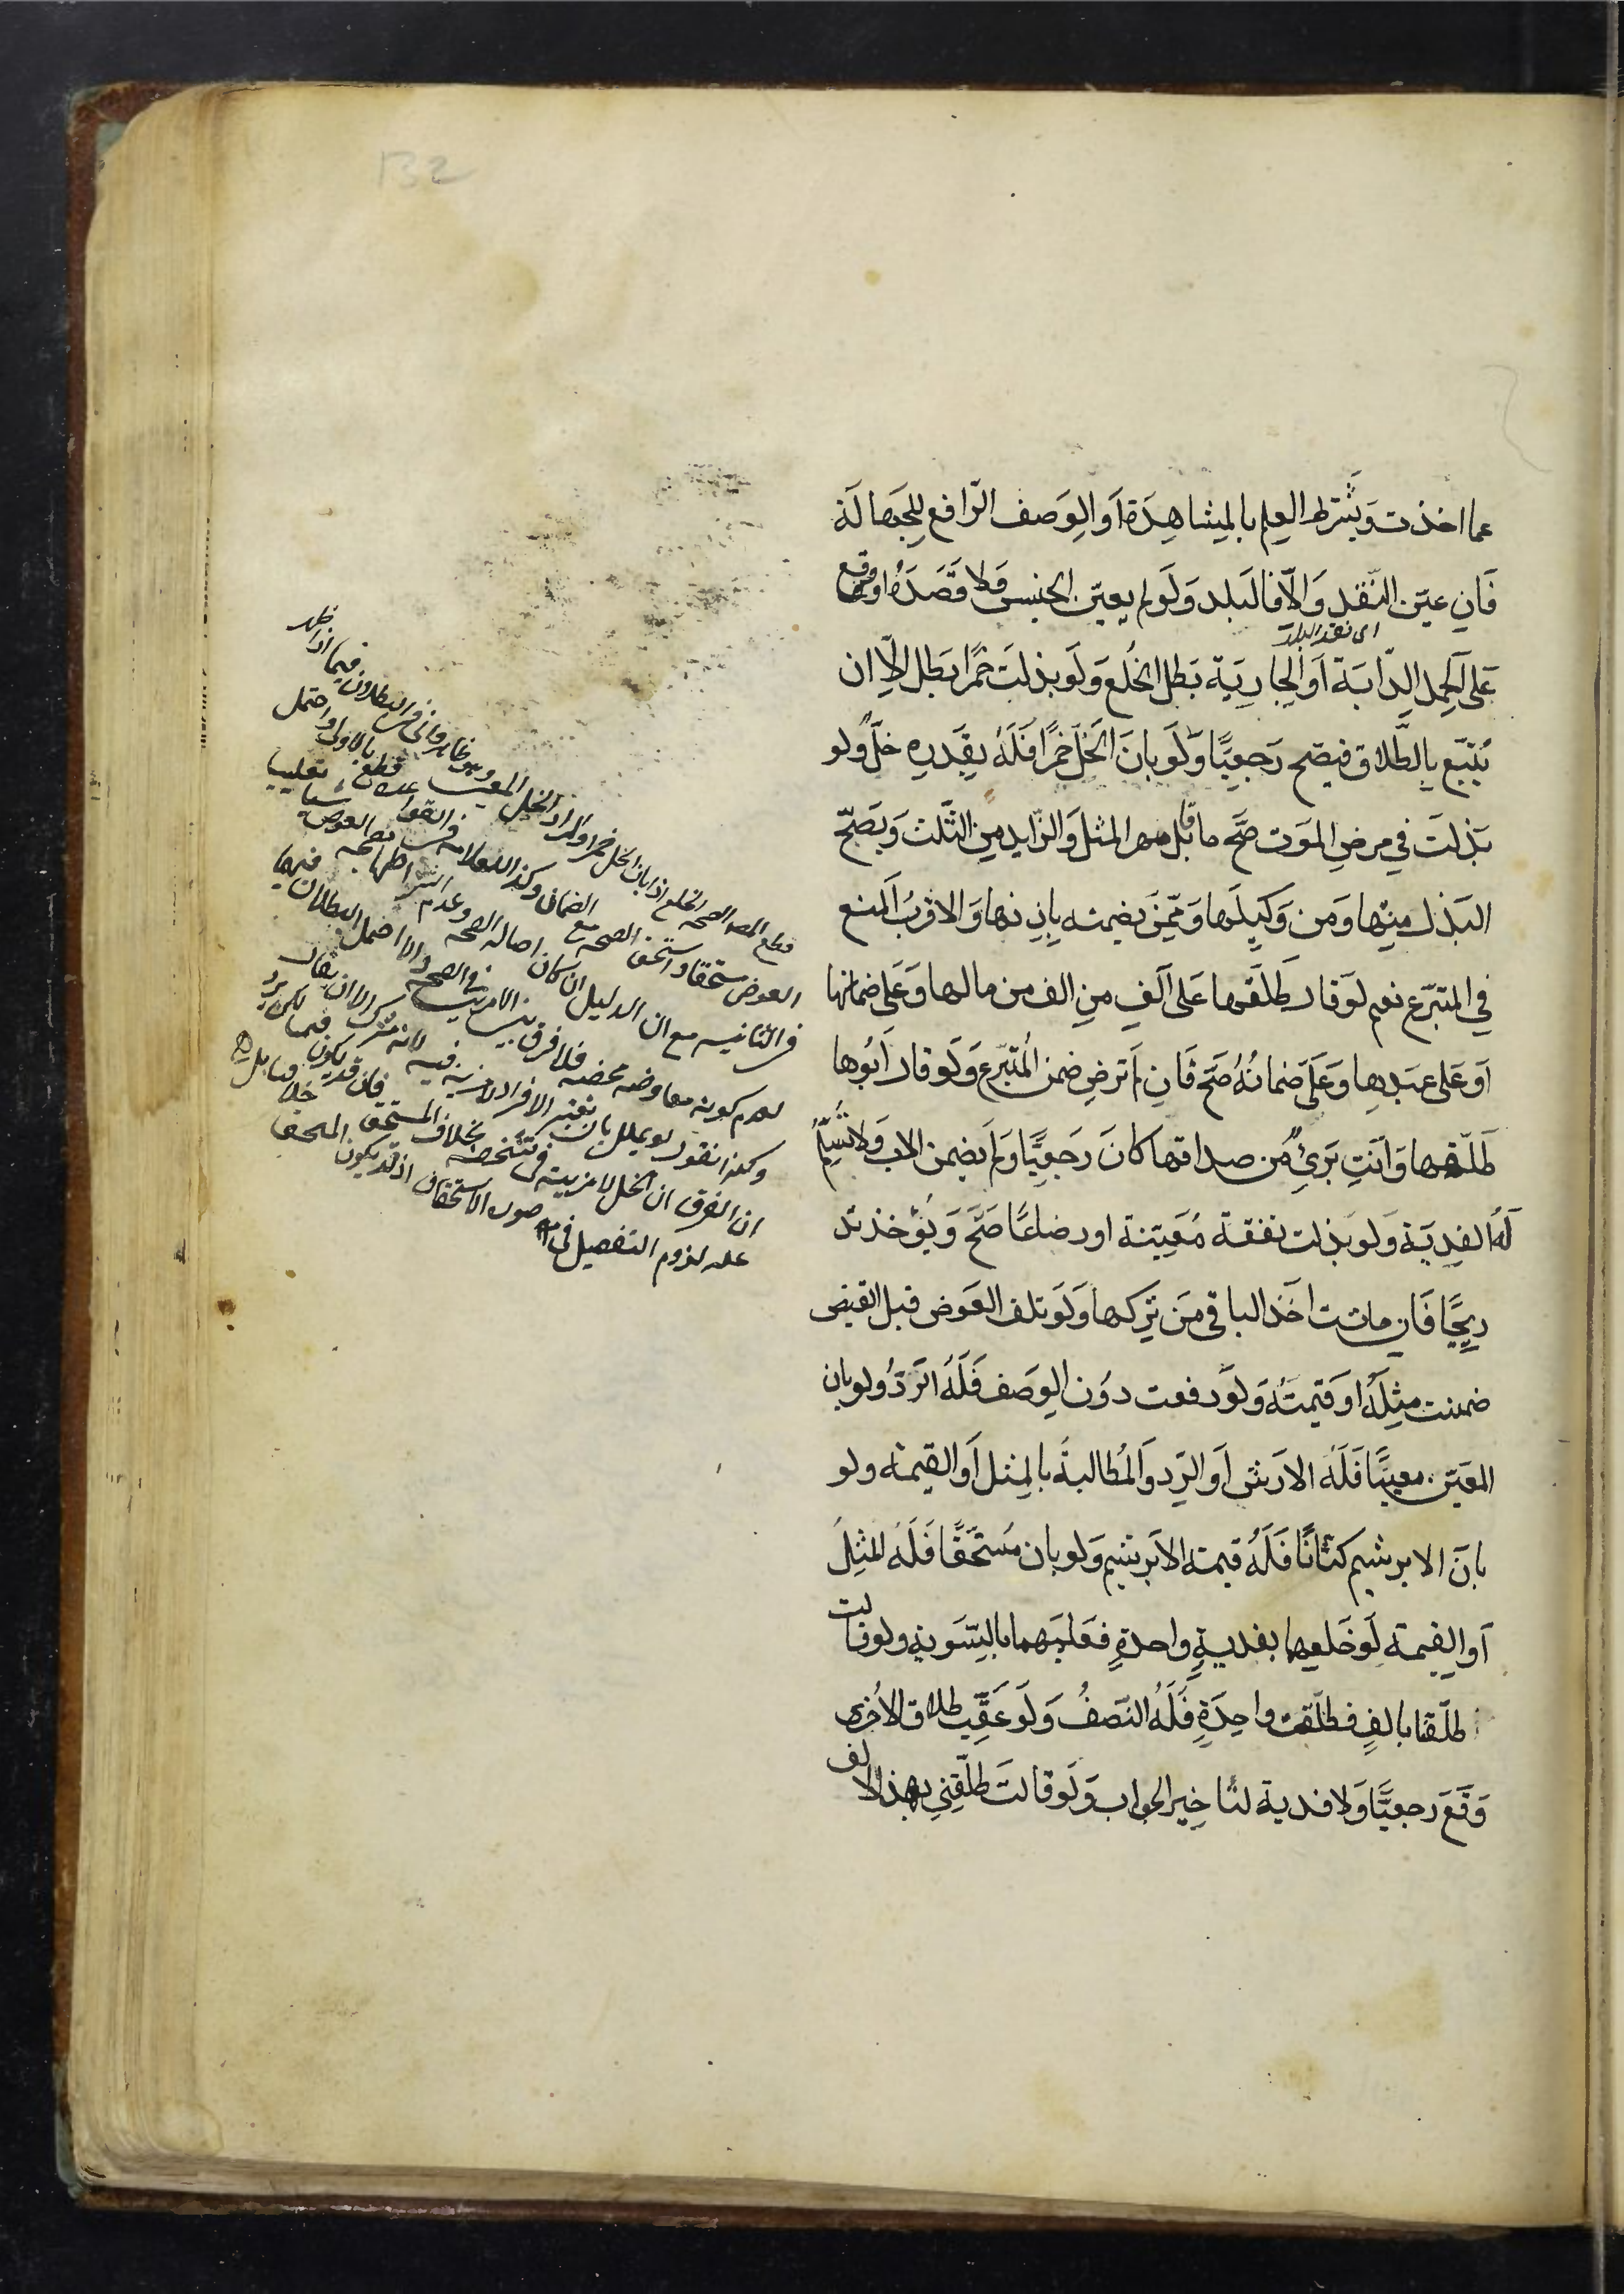 132
عما اخذت وَيُشترط العلم بالمشاهِدَة اَو الوَصف الرّافع لِلجَهالَة
فَان عيّن النّقد وَالّا فالبَلد وَلَو لم يعيّن الجنس وَلا قَصَدَهُ او وقع
اى نقد البلد
عَلى الحمل الدّابَة اَو الجارِيَة بَطل الخُلع وَلَو بذلَت خَمرًا بَطل الّا ان
يُتبَع بالطّلاق فيصَح رَجعيًّا وَلَو بانَ الخَلّ خَمرًا فَلَهُ بِقَدرِهِ خلٌّ ولو
بَذلَت في مرضِ المَوت صَحَّ ما قابل مهر المثل وَالزّايد مِن الثّلث وَيَصِحّ
البَذل مِنها وَمن وَكيلَها وَممّن يَضمنه باِذنها وَ الاقربُ المنع
في المتبرّع نعم لو قال طَلّقها عَلى اَلفٍ مِن الف من مالها وَعَلَى ضمانها
اَو عَلى عبَدِها وَعَلَىَّ ضمانُهُ صَحّ فَان لم ترضِ ضمن المُتبرّع وَلَو قال اَبُوها
طَلّقها وَاَنتَ بَرِئٌ من صداقها كانَ رَجَعِيًّا وَلَم يضمن الاب وَلا تُسَلَّمُ
لَهُ الفِديَة وَلو بذلت نفقة مُعَيّنة او رضاعًا صَحَّ وَيُؤخذ تد
ريجًا فَان ماتت اخَذ الباقي مَن تركها وَلَو تلف العَوض قبل القبض
ضمنت مِثلَهُ او قيمتَهُ وَلَو دفعت دوُن الوَصف فَلَهُ الرّدُّ ولو بان
المعَيّن معيبًا فَلَهُ الارَش اَو الرّد وَالمُطالبةُ بالمثل اَو القيمة ولو
بانَ الابريشيم كتّانًا فَلَهُ قيمة الابريشيم وَلو بان مُستَحَقًّا فَلَهُ المثِلُ
اَو القيمة لَو خَلعهما بفديةٍ واحدةٍ فعَليهما بالتّسَوية ولو قالت
طلّقنا بالفٍ فطلّقت واحِدَةٍ فَلَهُ النّصَفُ وَلَو عَقَّبَ طلاق الاُخرى
وَقَعَ رجعيًّا وَلا فدية لتاخير الجواب وَلَو قالتَ طلّقني بهذا الالف
قطع المصـ الصحه الخلع اذا بان الخل خمرا والمراد الخل المعين وهو ظاهر فان البطلان فيما اذا ظهر
العوض مستحقا واستحق الصحه مع الضمان وكذا العلامه في القواعد قطع بالاول واحتمل
في الثانيه مع ان الدليل ان كان اصاله الصحه وعدم اشتراطها بصحه العوض تغليبا
لعدم كونه معاوضه محضه فلا فرق بين الامرين في الصحه والا احتمل البطلان فيهما
وكذا نقول لو يعلل بان تغير الافراد لا مزيه فيه لانه مشترك الا ان يقال
ان الفرق ان الخل لا مزيه في تشخصه بخلاف المستحق فان قد يكون فيما لكن يرد
عليه لزوم التفصيل في صورة الاستحقاق اذ قد يكون المستحق خلا